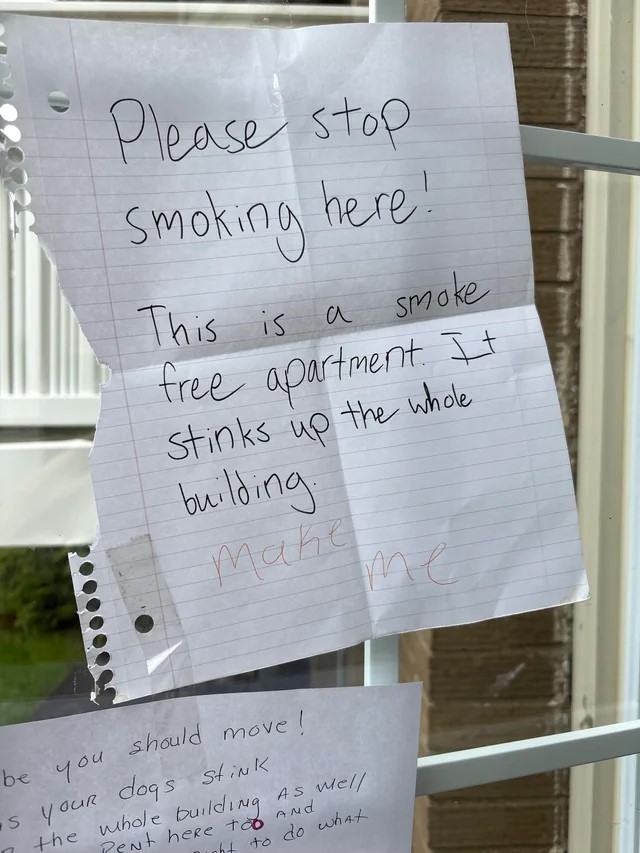 Please stop
smoking here!
This is a smoke
free apartment. It
stinks up the whole
building.
make me
be you should move!
s your dogs stink
the whole building As well
Rent here too AND
to do what